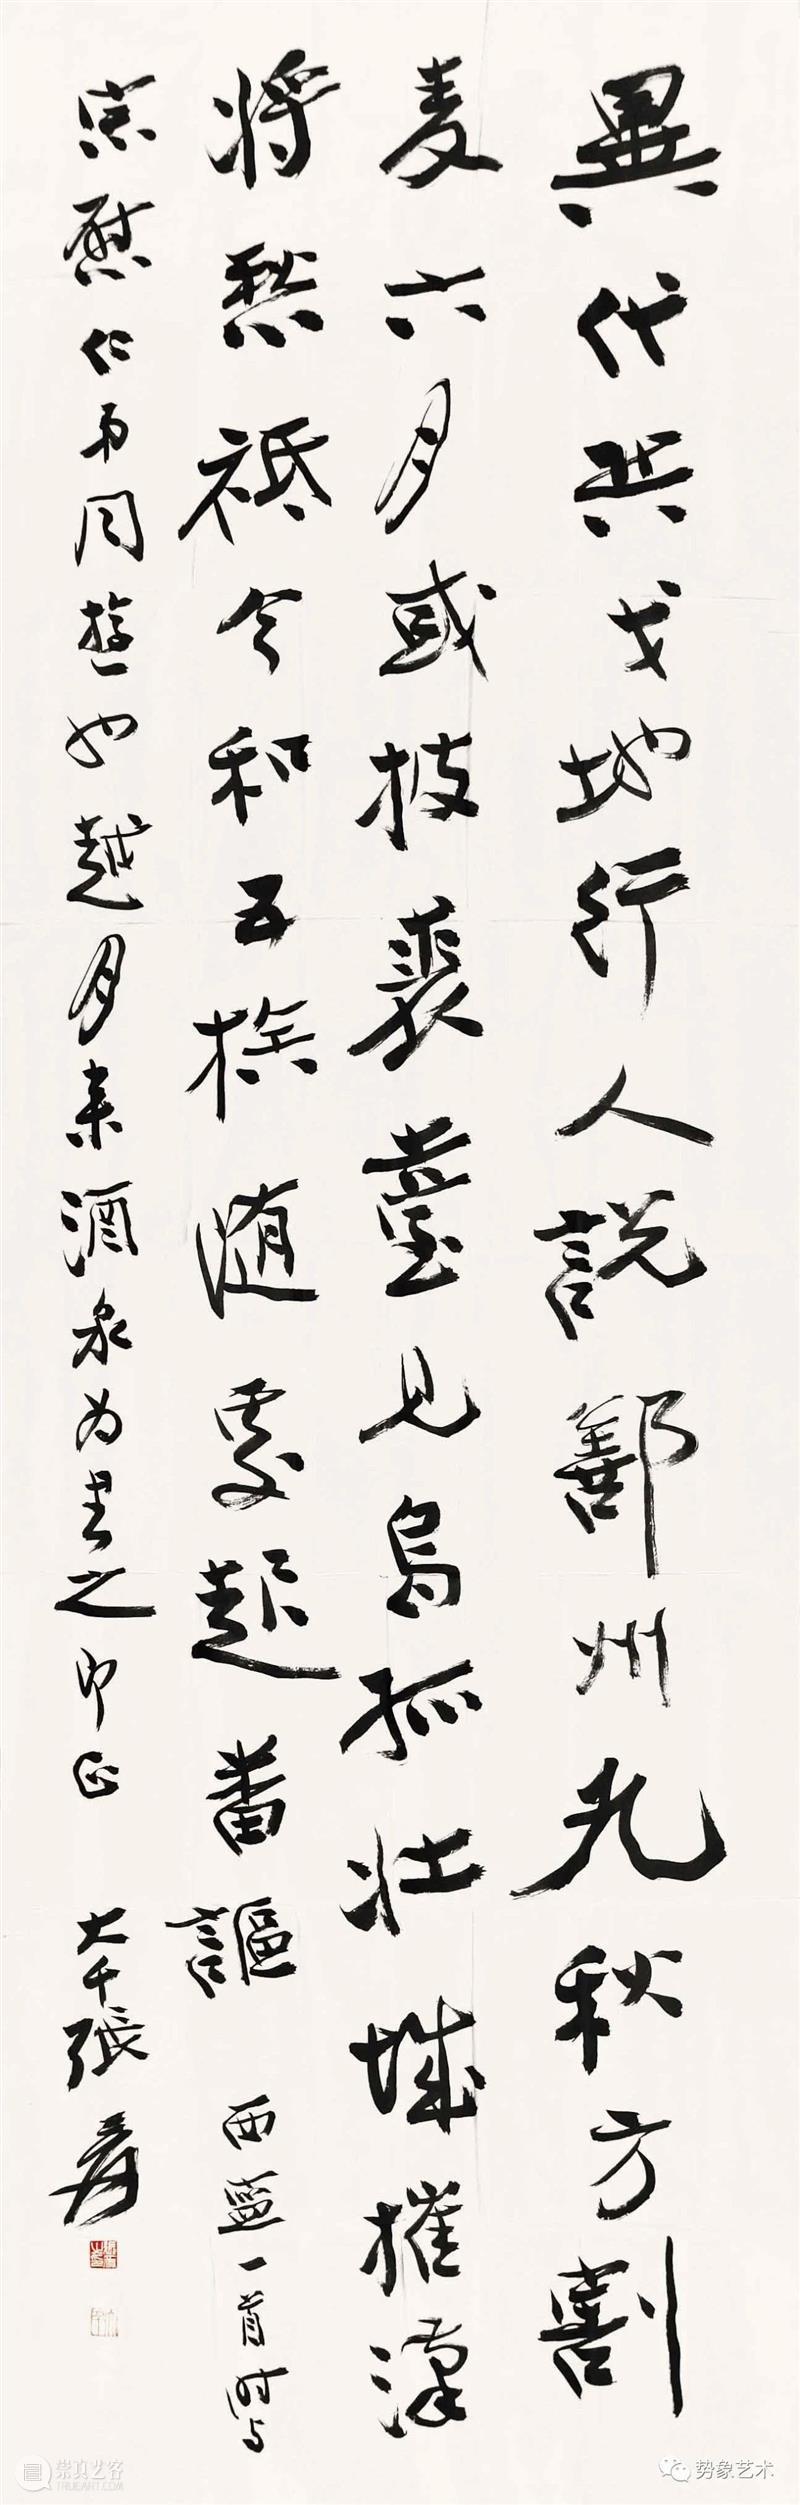 異代兵戈地行人說鄯州九秋方割
麥六月或披裘臺見烏孤壯城摧漢
將愁祇今和五族隨處起番謳 西寧一首時與
宗慰仁弟同遊也越月來酒泉為書之即正 大千張爰
崇真艺客
TRUEART.COM
势象艺术